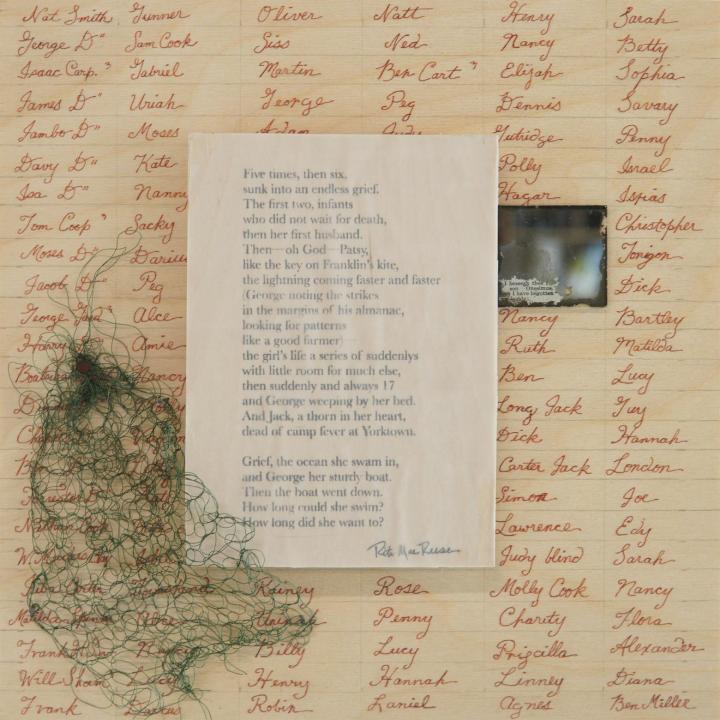 Nat Smith Gunner Oliver Natt Henry Sarah
George D" Sam Cook Siss Ned Nancy Betty
Isaac Carp. Gabriel Martin Ben Cart Elijah Sophia
James D" Uriah George Peg Dennis Savary
Jambo D" Moses Adam Judy Gutridge Penny
Davy D" Kate Polly Israel
Isa D" Nanny Hagar Isaias
Tom Coop Sacky Christopher
Moses D" Darius Tonigon
Jacob D" Peg Dick
George Alce Nancy Bartley
Harry Amie Ruth Matilda
Nancy Ben Lucy
Long Jack Guy
Dick Hannah
Carter Jack London
Simon Joe
Nathan Cook Lawrence Edy
Judy blind Sarah
Rainey Rose Molly Cook Nancy
Penny Charity Flora
Frank Nancy Billy Lucy Priscilla Alexander
Will Sham Lucy Henry Hannah Linney Diana
Frank Darius Robin Daniel Agnes Ben Miller
Five times, then six,
sunk into an endless grief.
The first two, infants
who did not wait for death,
then her first husband.
Then—oh God—Patsy,
like the key on Franklin's kite,
the lightning coming faster and faster
(George noting the strikes
in the margins of his almanac,
looking for patterns
like a good farmer)—
the girl's life a series of suddenlys
with little room for much else,
then suddenly and always 17
and George weeping by her bed.
And Jack, a thorn in her heart,
dead of camp fever at Yorktown.
Grief, the ocean she swam in,
and George her sturdy boat.
Then the boat went down.
How long could she swim?
How long did she want to?
I beseech thee for
my son Onesimus,
I have begotten